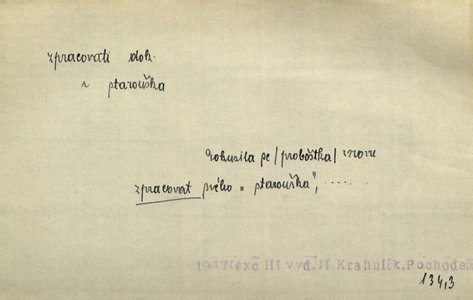 zpracovati dok.
starouška
Pokusila se /proboštka/ znovu
zpracovat svého „starouška”, .......
1947(exc III.vyd.)I.Krahulík,Pochodeň
134,3